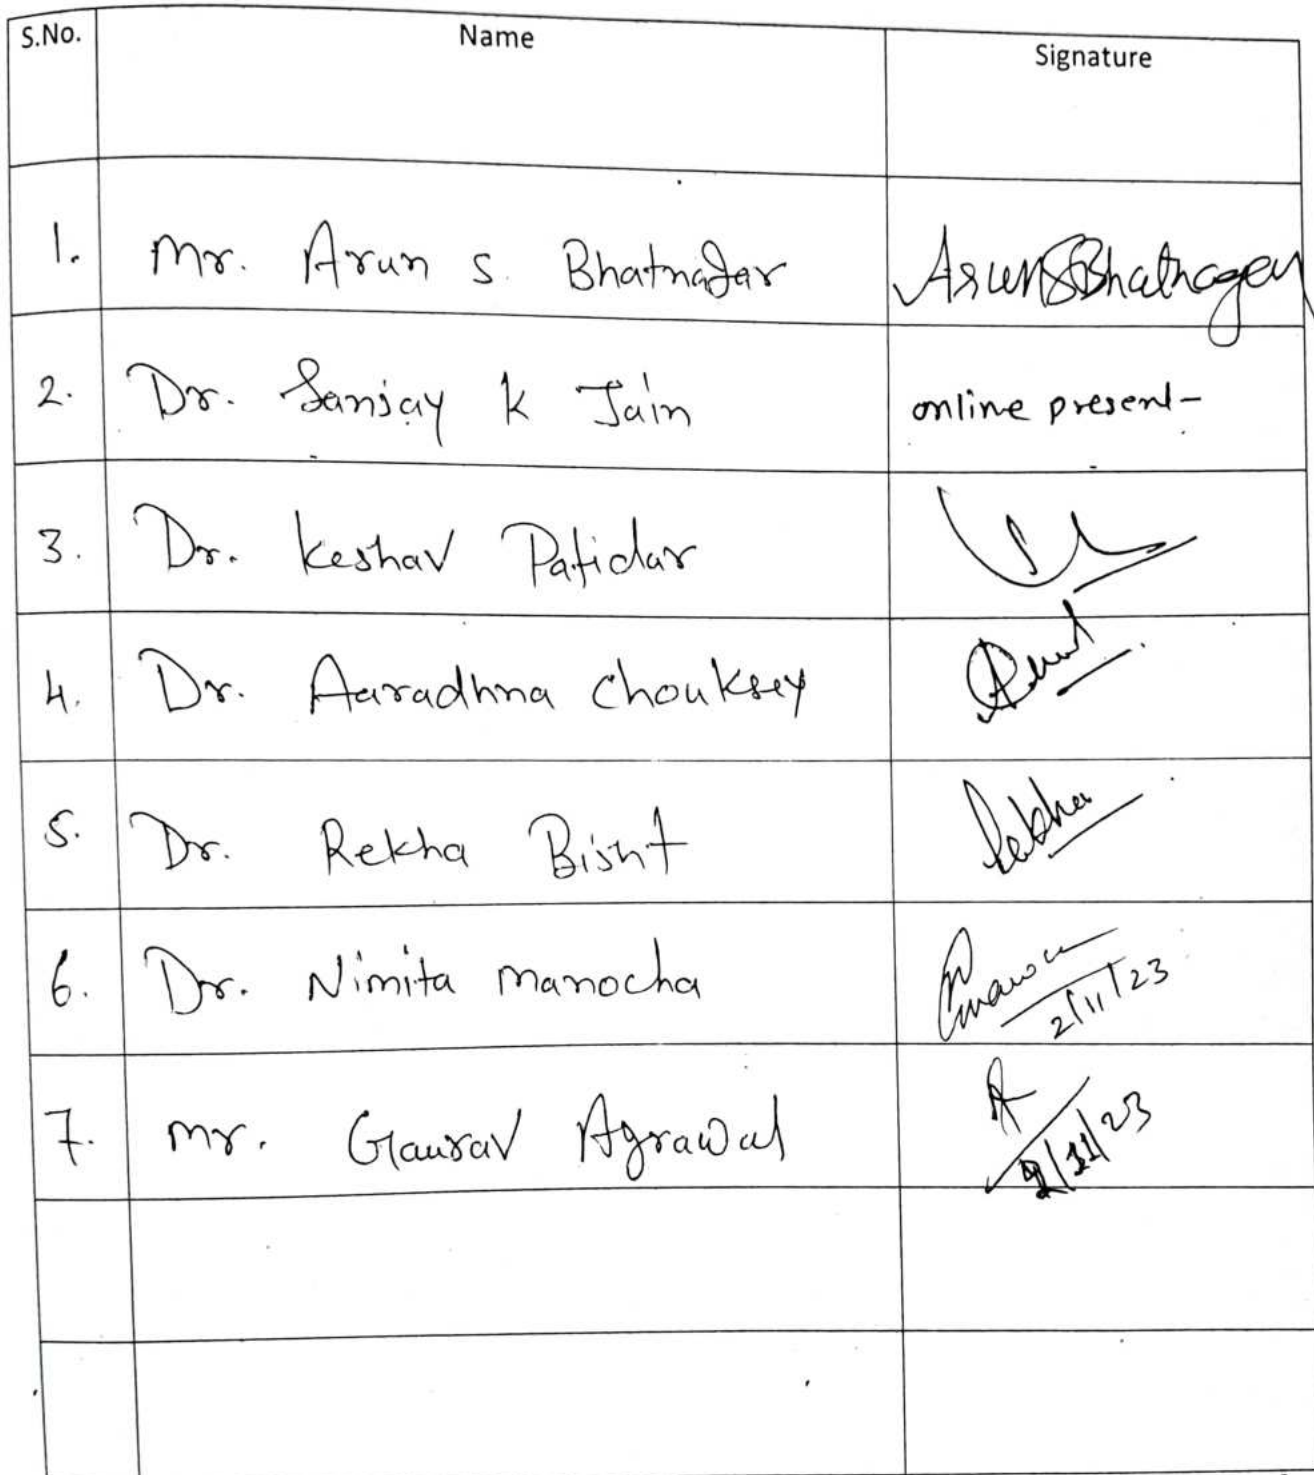 S.No. Name Signature
1. Mr. Arun S. Bhatnagar ArunSBhatnagar
2. Dr. Sanjay K Jain online present-
3. Dr. Keshav Patidar
4. Dr. Aaradhna Chouksey
5. Dr. Rekha Bisht Rekha
6. Dr. Nimita Manocha 2/11/23
7. Mr. Gaurav Agrawal 2/11/23